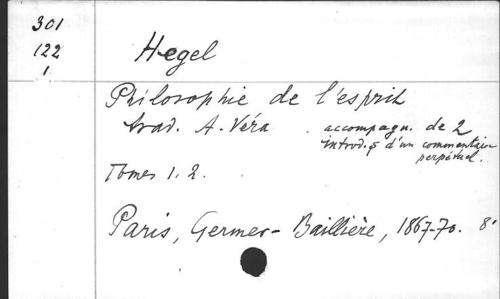 301
122
1
Hegel
Philosophie de l'esprit
trad. A. Véra . accompagn. de 2
introd. & d'un commentaire
perpétuel.
Tomes 1. 2.
Paris, Germer-Baillière, 1867-70. 8°